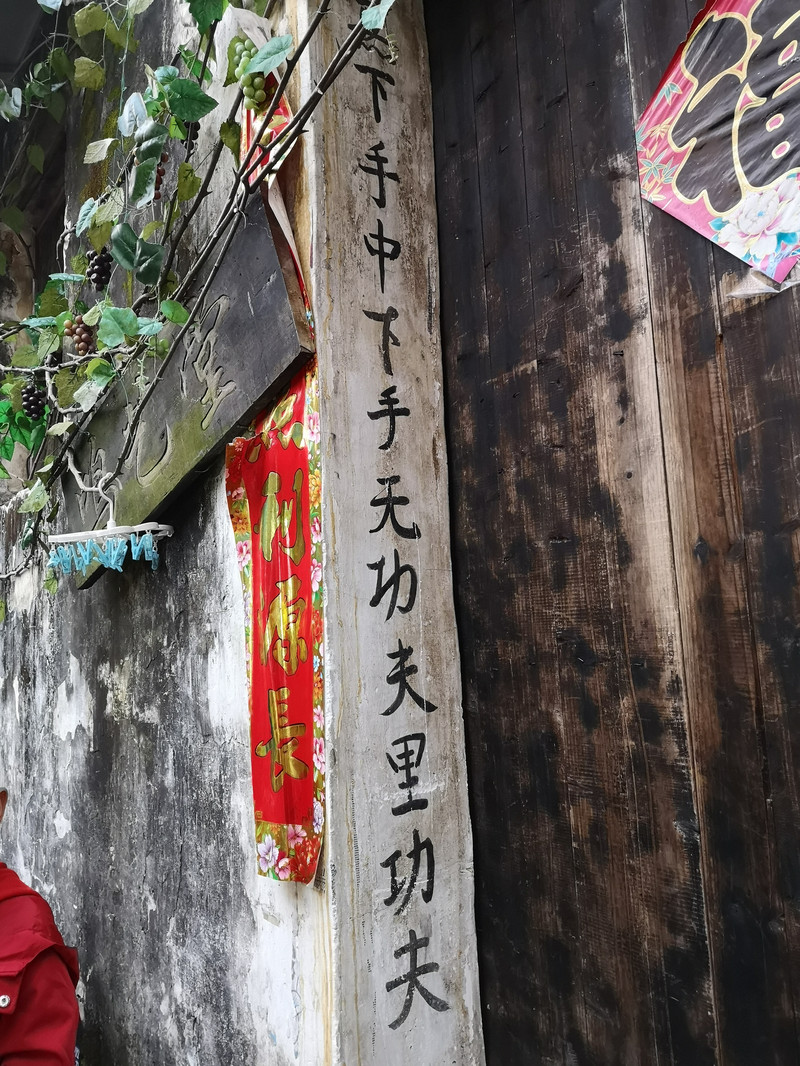 福
下手中下手无功夫里功夫
利源長